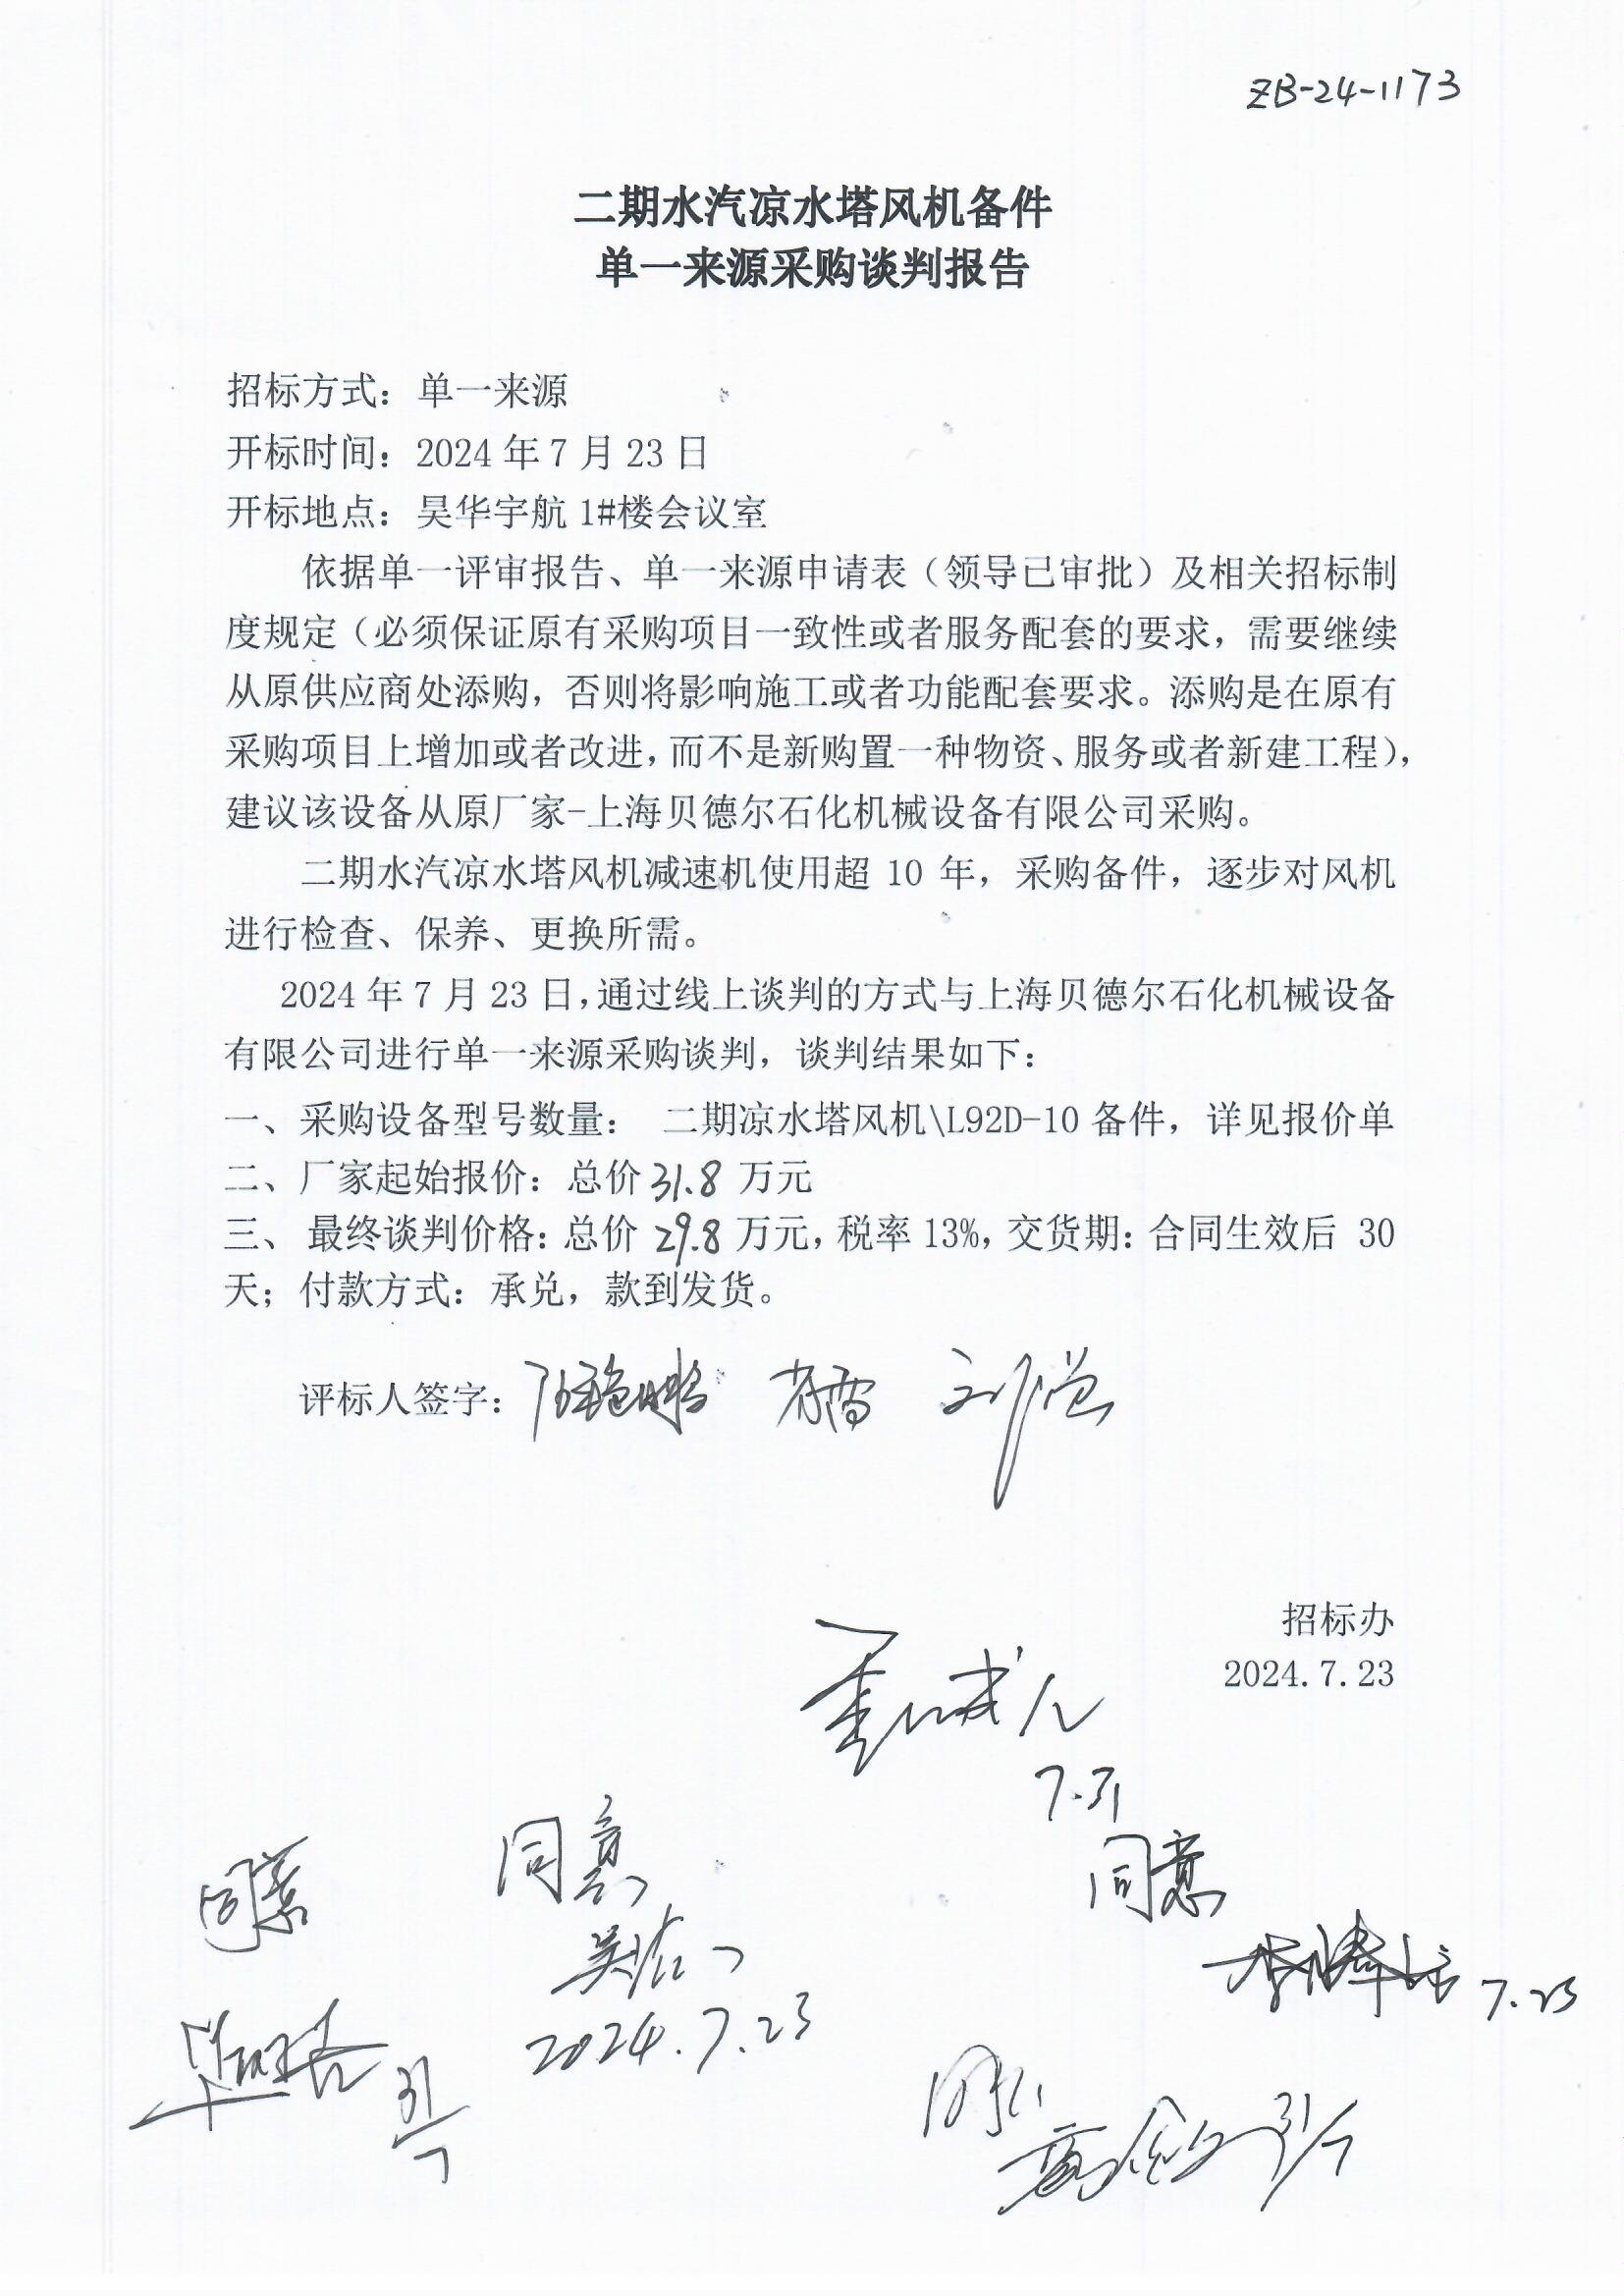 ZB-24-1173
二期水汽凉水塔风机备件
单一来源采购谈判报告
招标方式：单一来源
开标时间：2024年7月23日
开标地点：昊华宇航1#楼会议室
依据单一评审报告、单一来源申请表（领导已审批）及相关招标制
度规定（必须保证原有采购项目一致性或者服务配套的要求，需要继续
从原供应商处添购，否则将影响施工或者功能配套要求。添购是在原有
采购项目上增加或者改进，而不是新购置一种物资、服务或者新建工程），
建议该设备从原厂家-上海贝德尔石化机械设备有限公司采购。
二期水汽凉水塔风机减速机使用超 10 年，采购备件，逐步对风机
进行检查、保养、更换所需。
2024年7月23日，通过线上谈判的方式与上海贝德尔石化机械设备
有限公司进行单一来源采购谈判，谈判结果如下：
一、采购设备型号数量： 二期凉水塔风机\L92D-10备件，详见报价单
二、厂家起始报价：总价31.8万元
三、 最终谈判价格：总价29.8万元，税率13%，交货期：合同生效后 30
天；付款方式：承兑，款到发货。
评标人签字：
招标办
2024.7.23
7.31
同意
同意
同意
7.23
2024.7.23
31/7
31/7